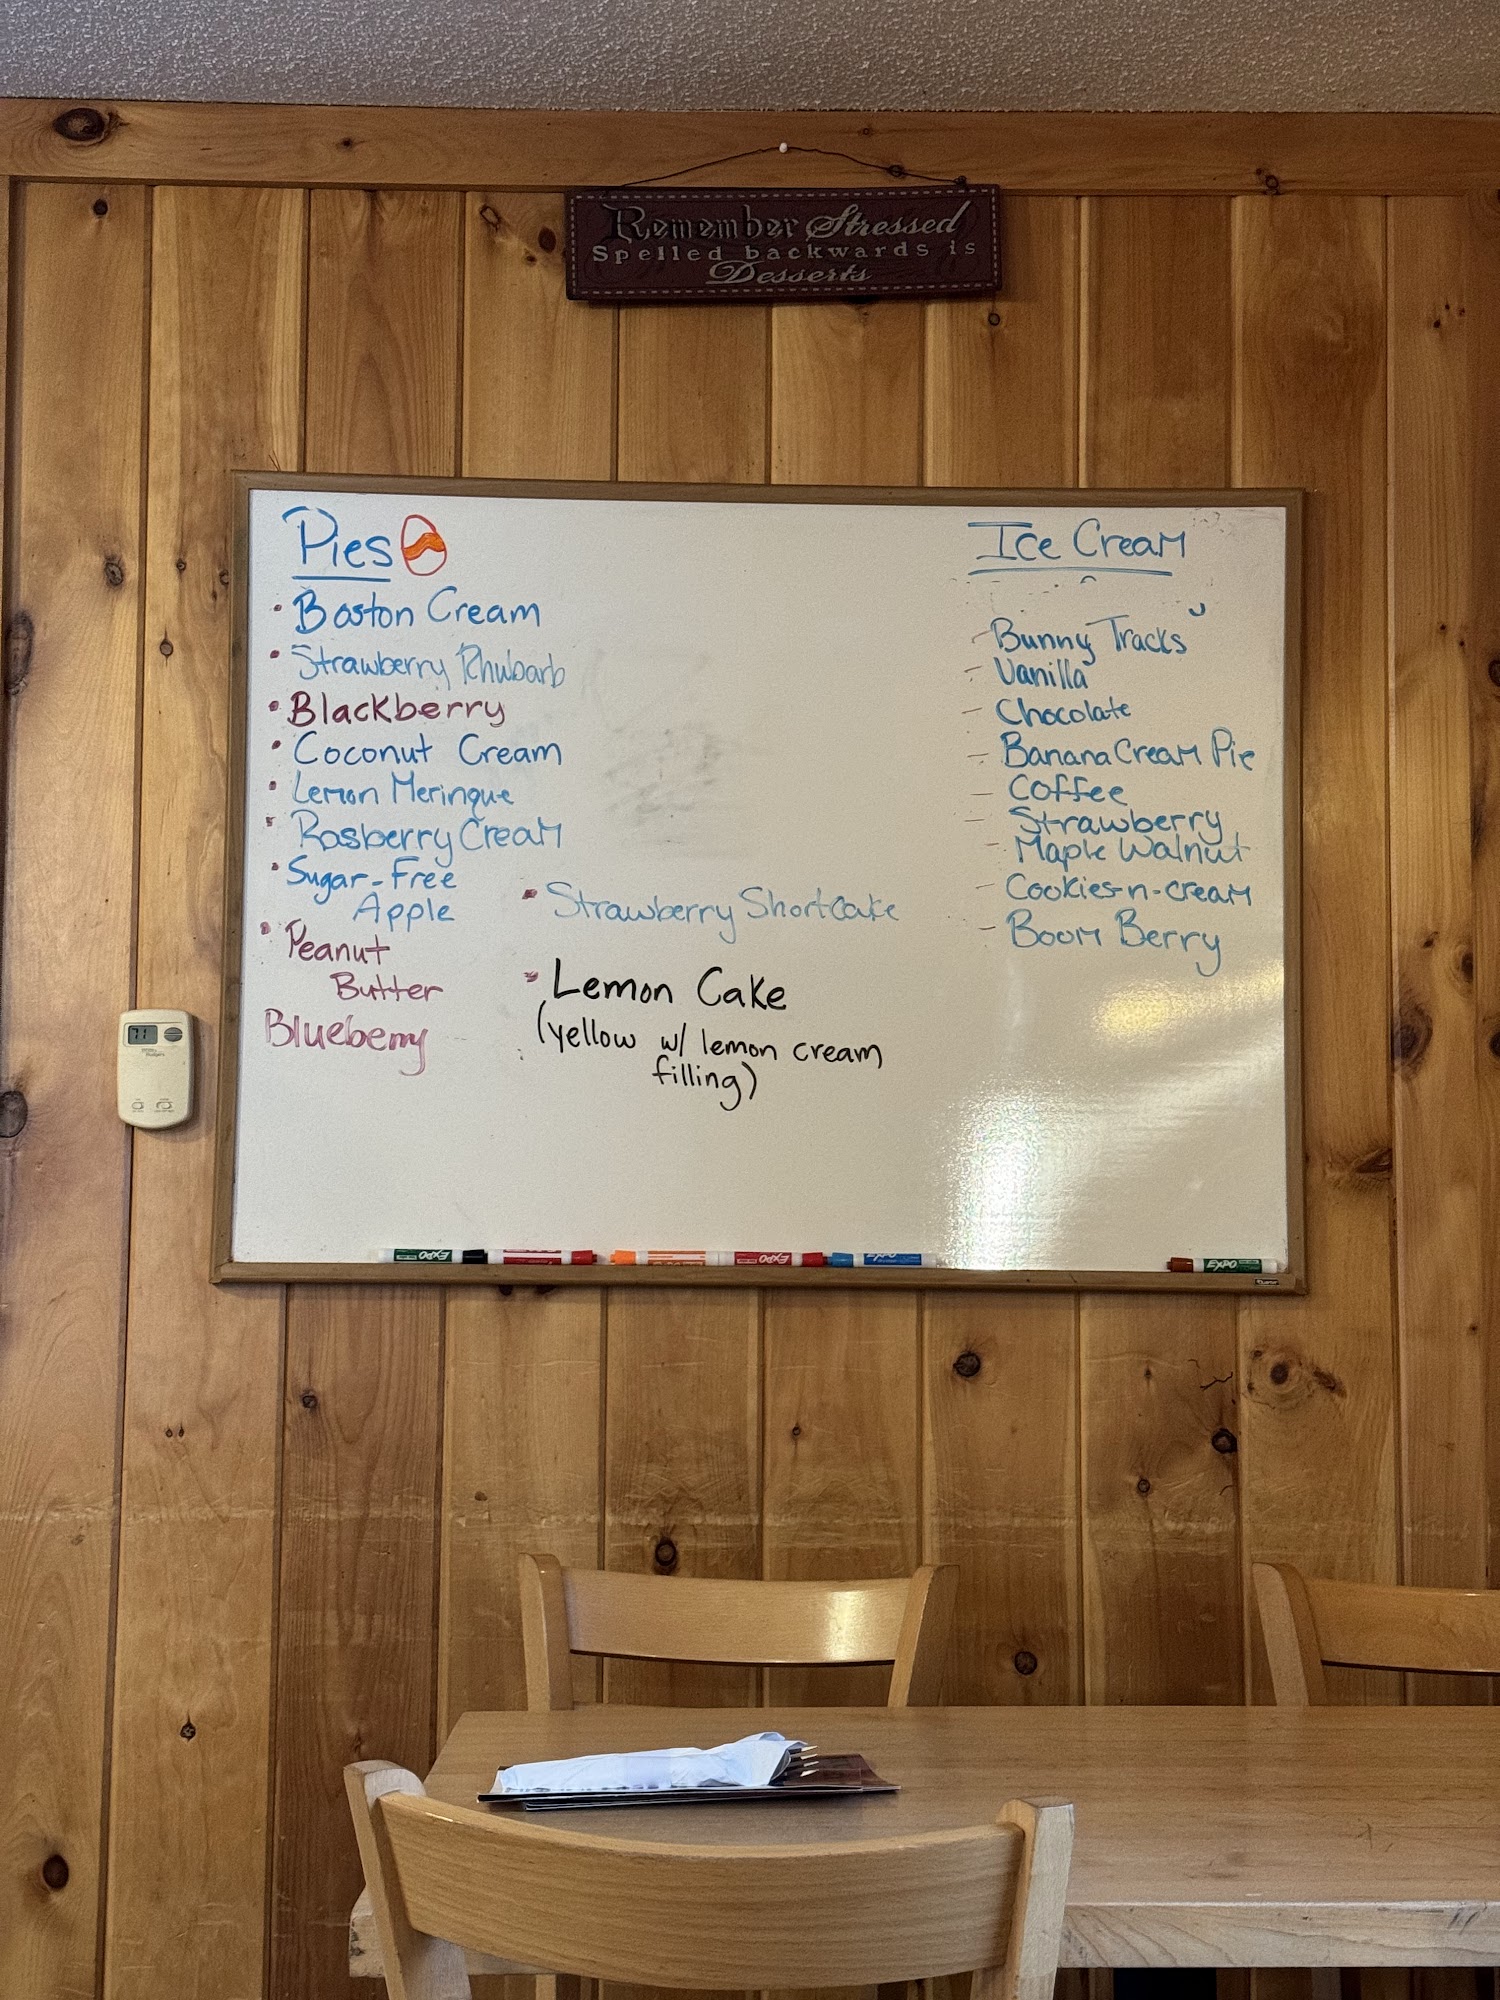 Remember Stressed
Spelled backwards is
Desserts
Pies
• Boston Cream
• Strawberry Rhubarb
• Blackberry
• Coconut Cream
• Lemon Meringue
• Rasberry Cream
• Sugar-Free
Apple
• Peanut
Butter
Blueberry
• Strawberry Shortcake
• Lemon Cake
(yellow w/ lemon cream
filling)
Ice Cream
- Bunny Tracks
- Vanilla
- Chocolate
- Banana Cream Pie
- Coffee
- Strawberry
- Maple Walnut
- Cookies-n-cream
- Boom Berry
71
EXPO
EXPO
EXPO
EXPO